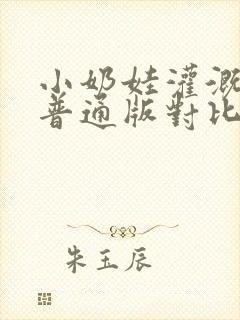 小奶娃灌溉
普通版對比
朱玉辰